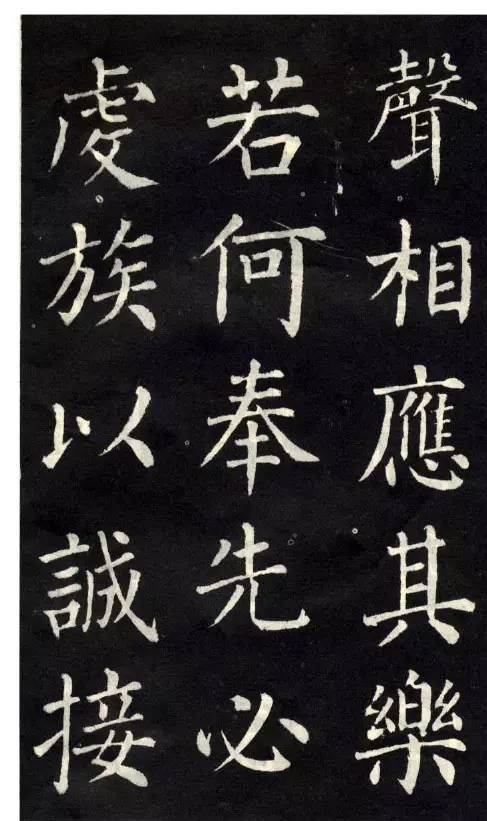 聲相應其樂
若何奉先必
虔族以誠接